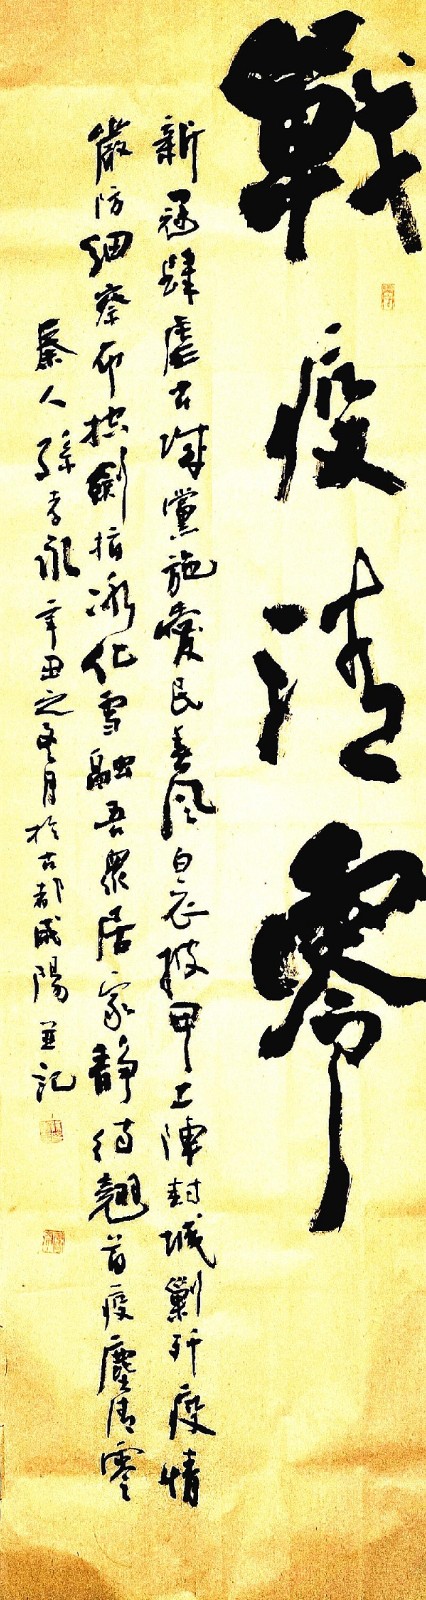 戰疫清零
新冠肆虐古城黨施愛民春風白衣披甲上陣封城剿歼疫情
嚴防細察布控劍指冰化雪融吾衆居家靜待翹首疫塵清零
秦人孫孝永辛丑之冬月於古都咸陽並記